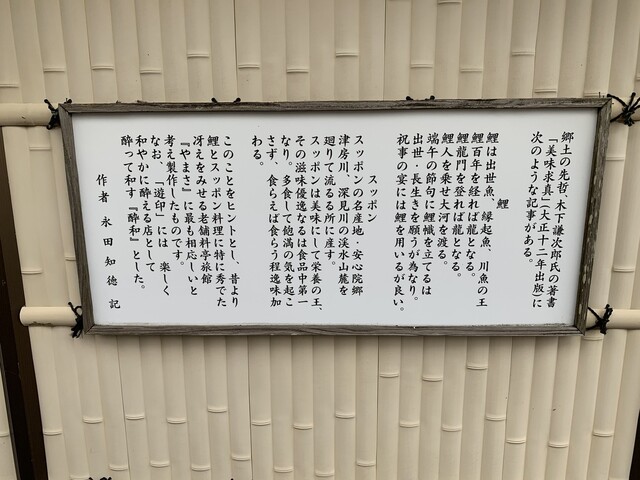 郷土の先哲・木下謙次郎氏の著書
「美味求真」(大正十二年出版)に
次のような記事がある。
鯉
鯉は出世魚、縁起魚、川魚の王
鯉百年を経れば龍となる。
鯉龍門を登れば龍となる。
鯉人を乗せ大河を渡る。
端午の節句に鯉幟を立てるは
出世・長生きを願うが為なり。
祝事の宴には鯉を用いるが良い。
スッポン
スッポンの名産地・安心院郷
津房川、深見川の渓水山麓を
廻りて流るる所に産す。
スッポンは美味にして栄養の王、
その滋味優逸なるは食品中第一
なり。多食して飽満の気を起こ
さず、食らえば食らう程逸味加
わる。
このことをヒントとし、昔より
鯉とスッポン料理に特に秀でた
冴えをみせる老舗料亭旅館
『やまさ』に最も相応しいと
考え製作したものです。
なお、「遊印」には 楽しく
和やかに酔える店として
酔って和す『酔和』とした。
作者 永田知徳 記